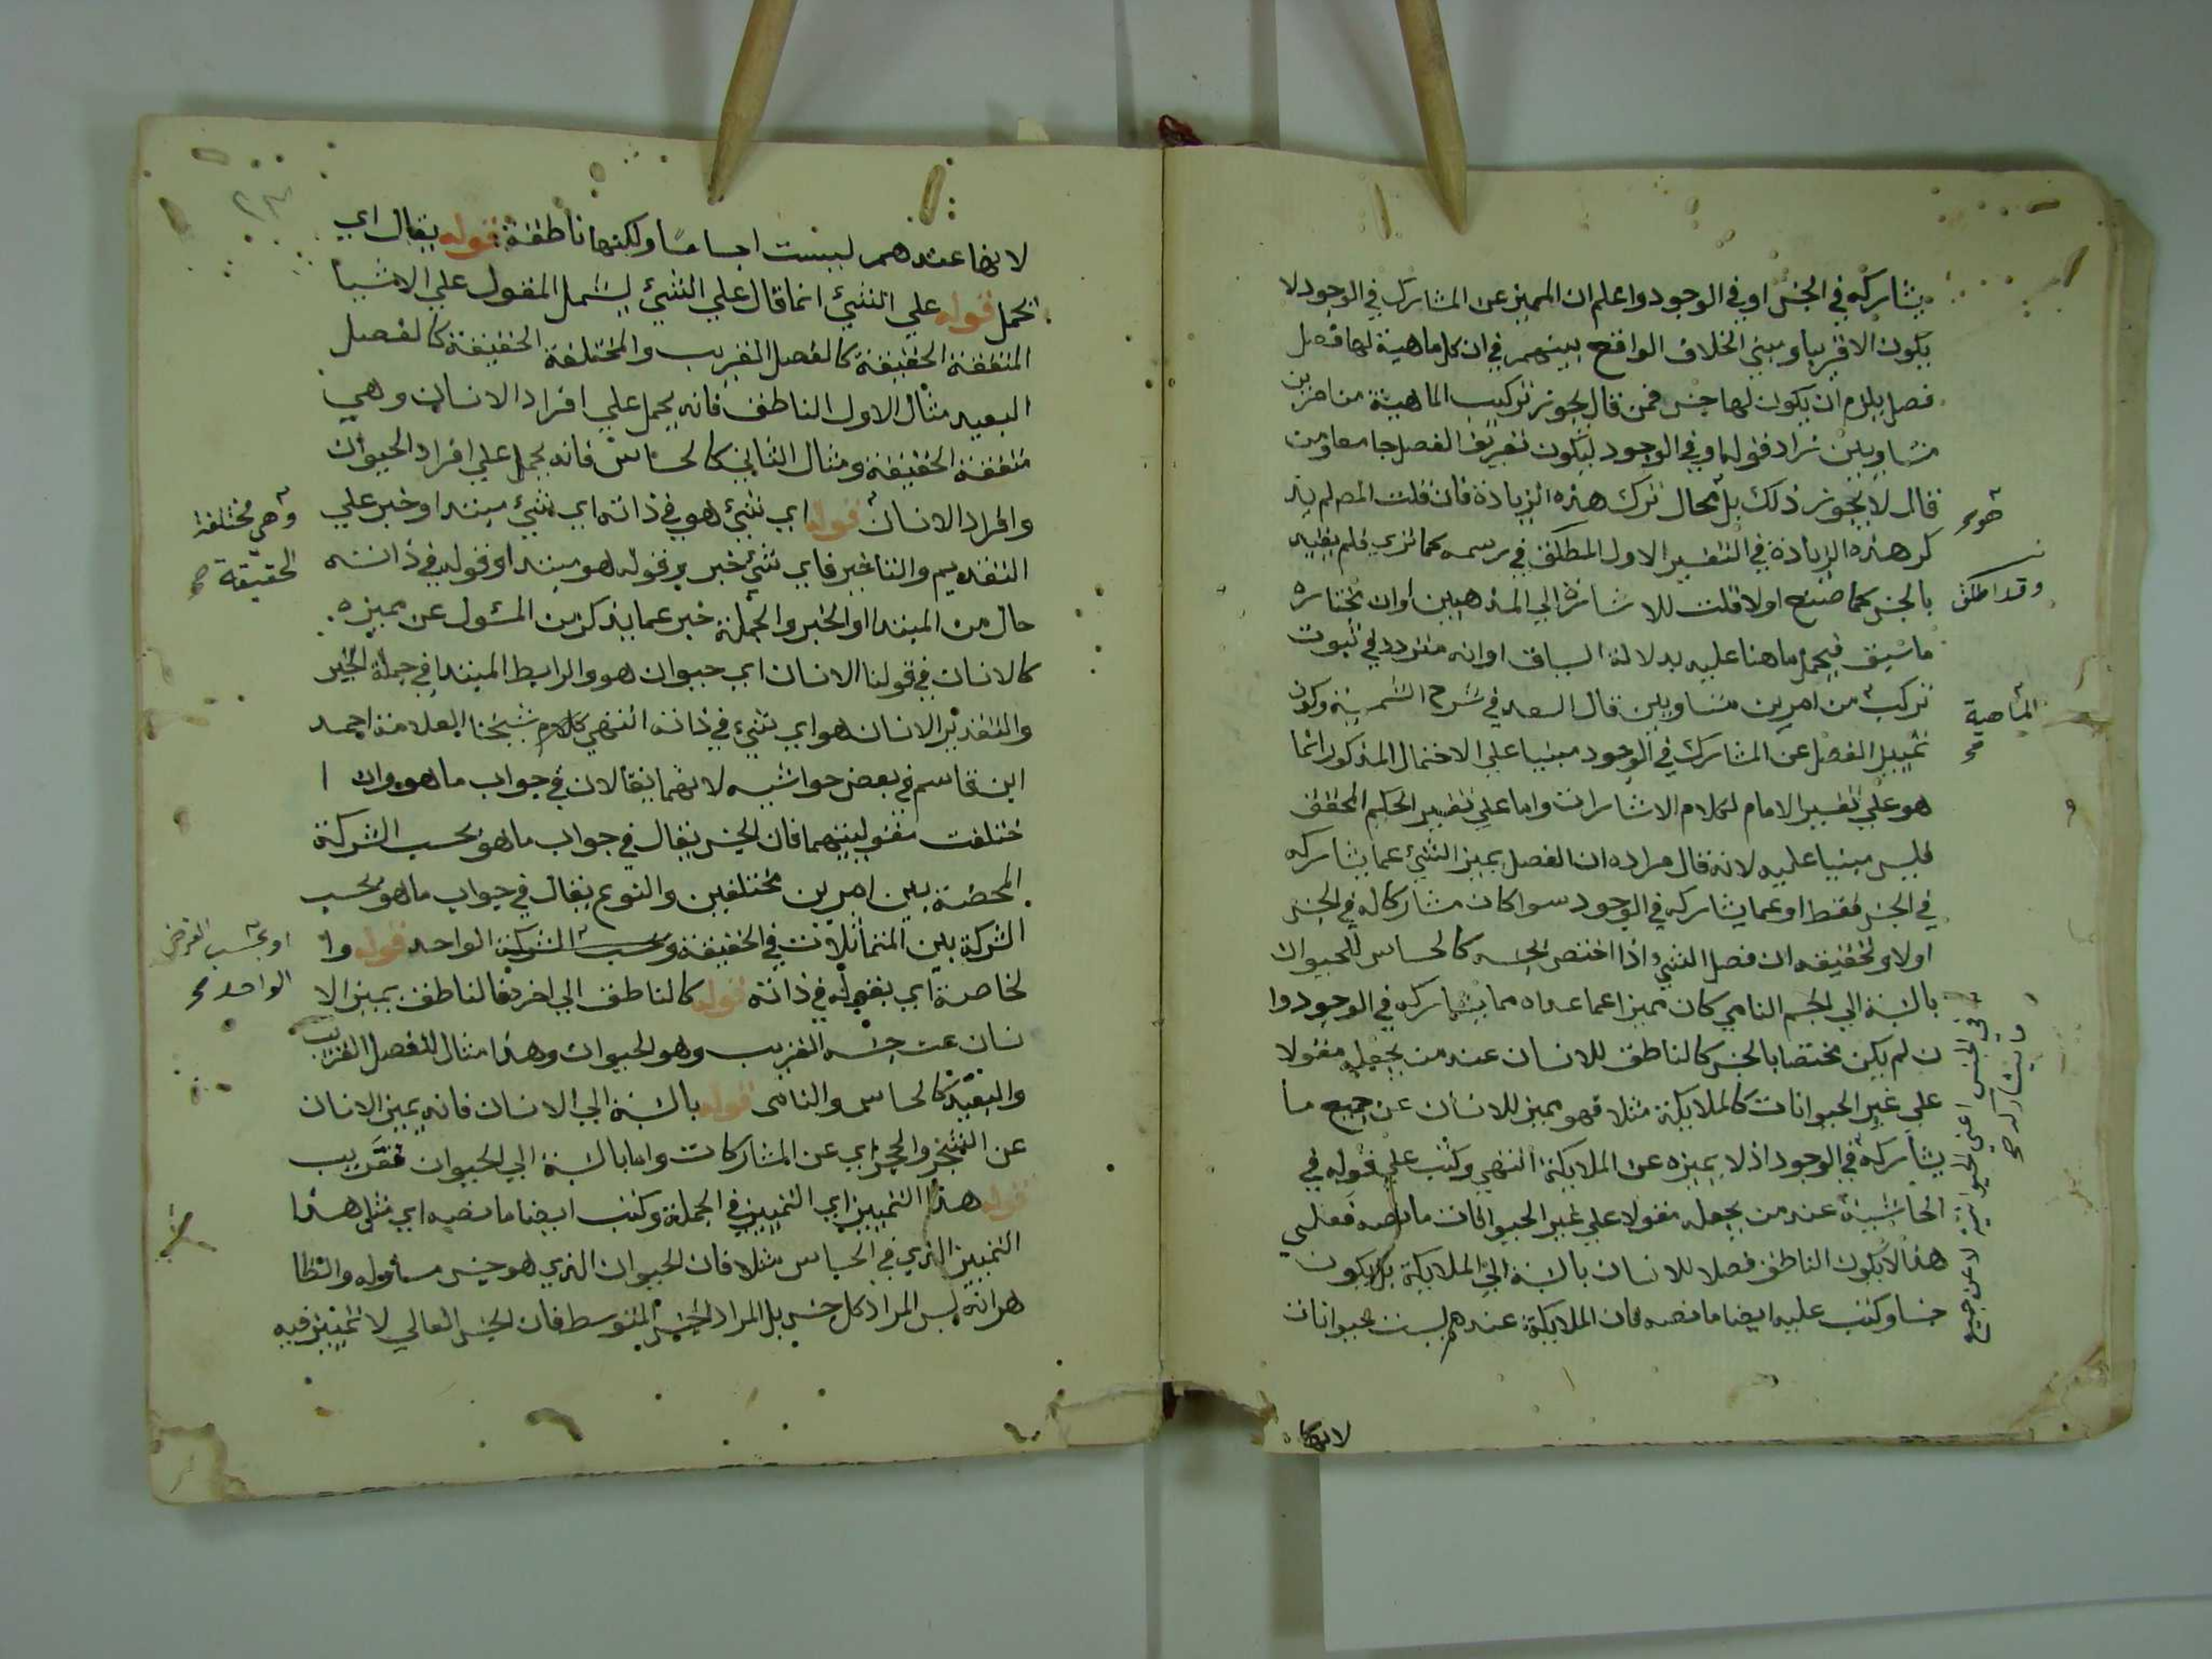 يشاركه في الجنس او في الوجود واعلم ان المميز عن المشارك في الوجود لا
يكون الا قريبا ومبني الخلاف الواقع بينهم في ان كل ماهية لها فصل
فصل يلزم ان يكون لها جنس فمن قال يجوز تركيب الماهية من امرين
متساويين زاد قوله او في الوجود ليكون تعريف الفصل جامعا ومن
قال لا يجوز ذلك بل محال ترك هذه الزيادة فان قلت المص لم يذ
كر هذه الزيادة في التفسير الاول المطلق في رسمه كما تري فلم يقيد
بالجنس كما صنع اولا قلت للاشارة الي المذهبين او ان يختاره
ما سبق فيحمل ما هنا عليه بدلالة السياق او انه متردد في ثبوت
تركب من امرين متساويين قال السعد في شرح الشمسية وكون
تمييز الفصل عن المشارك في الوجود مبنيا علي الاحتمال المذكور انما
هو علي تفسير الامام لكلام الاشارات واما علي تفسير الحكيم المحقق
فليس مبنيا عليه لانه قال مراده ان الفصل يميز الشيء عما يشاركه
في الجنس فقط او عما يشاركه في الوجود سوا كان مشاركا له في الجنس
اولا وتحقيقه ان فصل الشيء اذا اختص بجنسه كالحساس للحيوان
بالنسبة الي الجسم النامي كان مميزا عما عداه مما يشاركه في الوجود وا
ن لم يكن مختصا بالجنس كالناطق للانسان عند من يجعله مقولا
علي غير الحيوانات كالملايكة مثلا فهو يميز للانسان عن جميع ما
يشاركه في الوجود اذ لا يميزه عن الملايكة انتهي وكتب علي قوله في
الحاشية عند من يجعله مقولا علي غير الحيوانات ما نصه فعلي
هذا لا يكون الناطق فصلا للانسان بالنسبة الي الملايكة بل يكون
جنسا وكتب عليه ايضا ما نصه فان الملايكة عندهم ليست حيوانات
هو
وقد اطلق
الماهية صح
في الجنس اعني الحيوانية لا عن جميع
ما يشاركه صح
لانها
٢٣
لانها عندهم ليست اجساما ولكنها ناطقة قوله يقال اي
يحمل قوله علي الشيء انما قال علي الشيء ليشمل المقول علي الاشيا
المتفقة الحقيقة كالفصل القريب والمختلفة الحقيقة كالفصل
البعيد مثال الاول الناطق فانه يحمل علي افراد الانسان وهي
متفقة الحقيقة ومثال الثاني كالحساس فانه يحمل علي افراد الحيوان
وافراد الانسان قوله اي شيء هو في ذاته اي شيء مبتدا او خبر علي
التقديم والتاخير فاي شيء خبر وقوله هو مبتدا وقوله في ذاته
حال من المبتدا او الخبر والجملة خبر عما يذكر من المسئول عن مميزه
كالانسان في قولنا الانسان اي حيوان هو والرابط المبتدا في جملة الخبر
والتقدير الانسان هو اي شيء في ذاته انتهي كلام شيخنا العلامة احمد
ابن قاسم في بعض حواشيه لانهما يقالان في جواب ما هو وان ا
ختلفت مقوليتهما فان الجنس يقال في جواب ما هو بحسب الشركة
المحضة بين امرين مختلفين والنوع يقال في جواب ما هو بحسب
الشركة بين المتماثلات في الحقيقة وبحسب الشركة الواحد قوله وا
لخاصة اي بقوله في ذاته قوله كالناطق الي اخره فالناطق يميز الا
نسان عن جنسه القريب وهو الحيوان وهذا مثال للفصل القريب
والبعيد كالحساس والنامي قوله بالنسبة الي الانسان فانه يميز الانسان
عن الشجر والحجر اي عن المشاركات واما بالنسبة الي الحيوان فقريب
قوله هذا التمييز اي التمييز في الجملة وكتب ايضا ما نصه اي مثل هذا
التمييز الذي في الحساس مثلا فان الحيوان الذي هو جنس مساو له والظا
هر انه ليس المراد كل جنس بل المراد الجنس المتوسط فان الجنس العالي لا تمييز فيه
وهي مختلفة
الحقيقة صح
او بحسب
الواحد صح